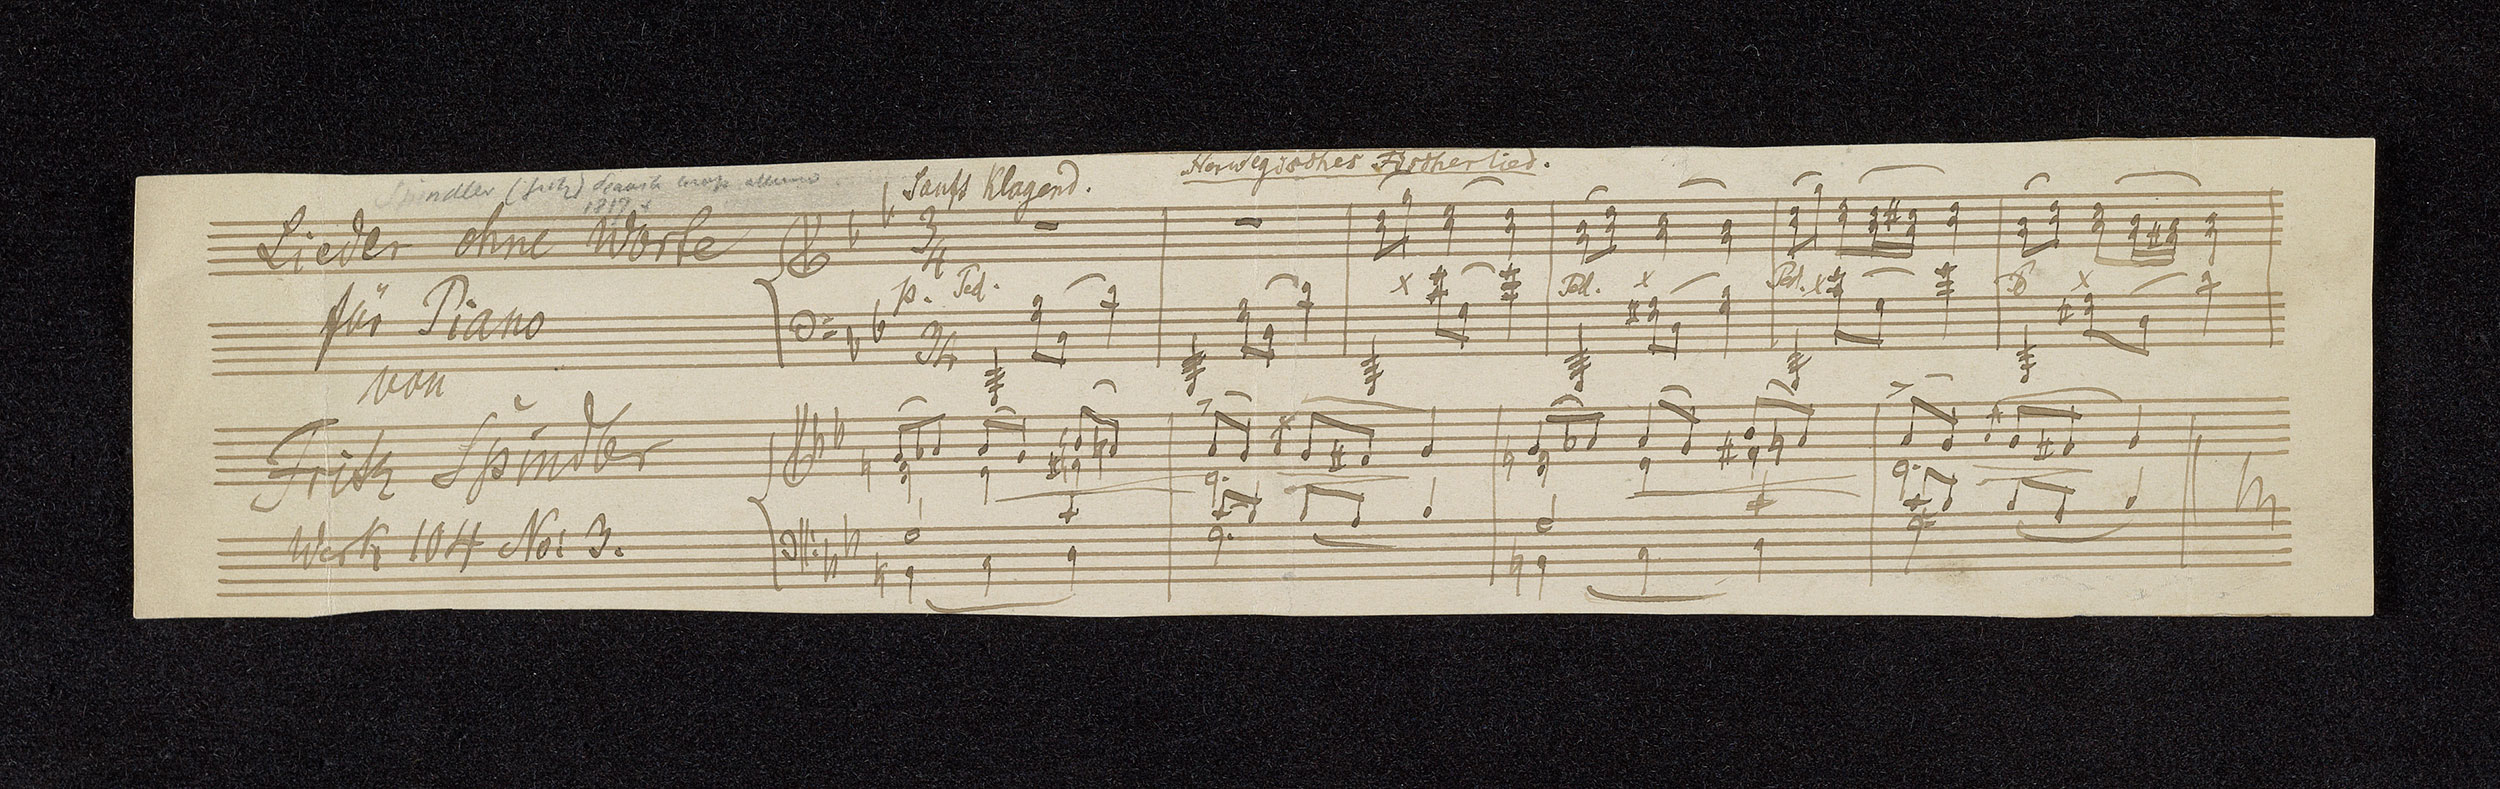 Spindler (Fritz)
1817
Sanft Klagend.
Norwegisches Fischerlied.
Lieder ohne Worte
3/4
p. Ped.
Ped.
Ped.
für Piano
3/4
von
Fritz Spindler
Werk 104 No: 3.